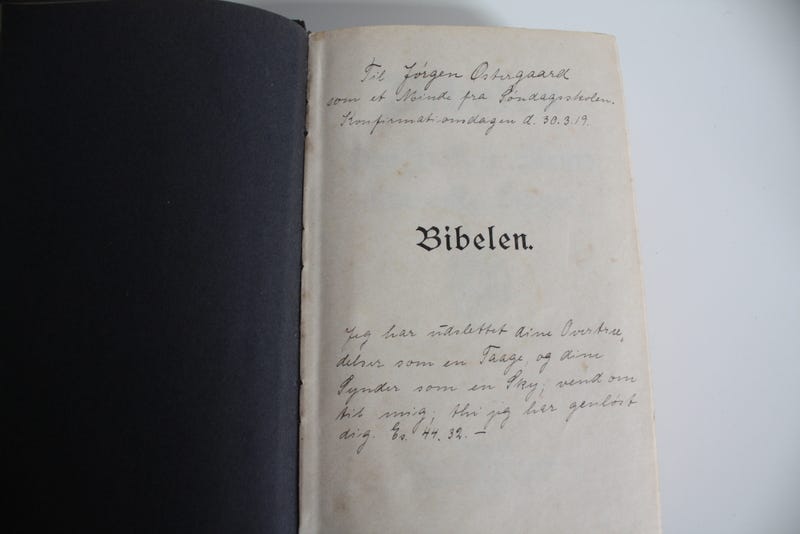 Til Jörgen Ostergaard
som et Minde fra Söndagsskolen.
Konfirmationsdagen d. 30.3.19.
Bibelen.
Jeg har udslettet dine Overtræ-
delser som en Taage, og dine
Synder som en Sky; vend om
til mig; thi jeg har genlöst
dig. Es. 44. 32. —